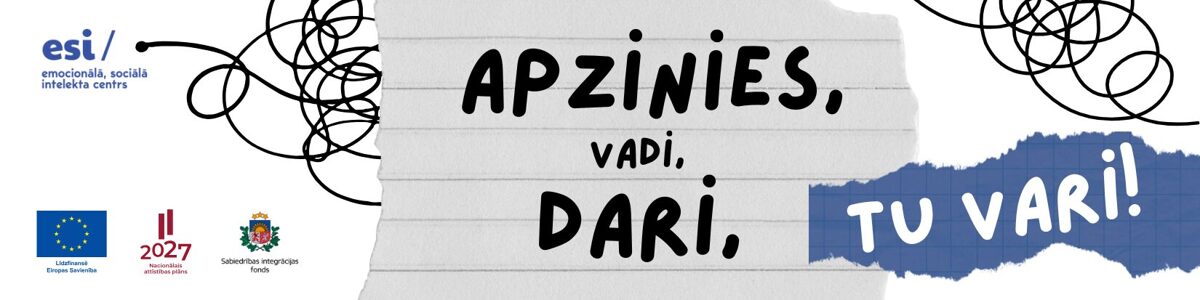 esi/
emocionālā, sociālā
intelekta centrs
APZINIES,
VADI,
DARI,
TU VARI!
Līdzfinansē
Eiropas Savienība
2027
Nacionālais
attīstības plāns
Sabiedrības integrācijas
fonds